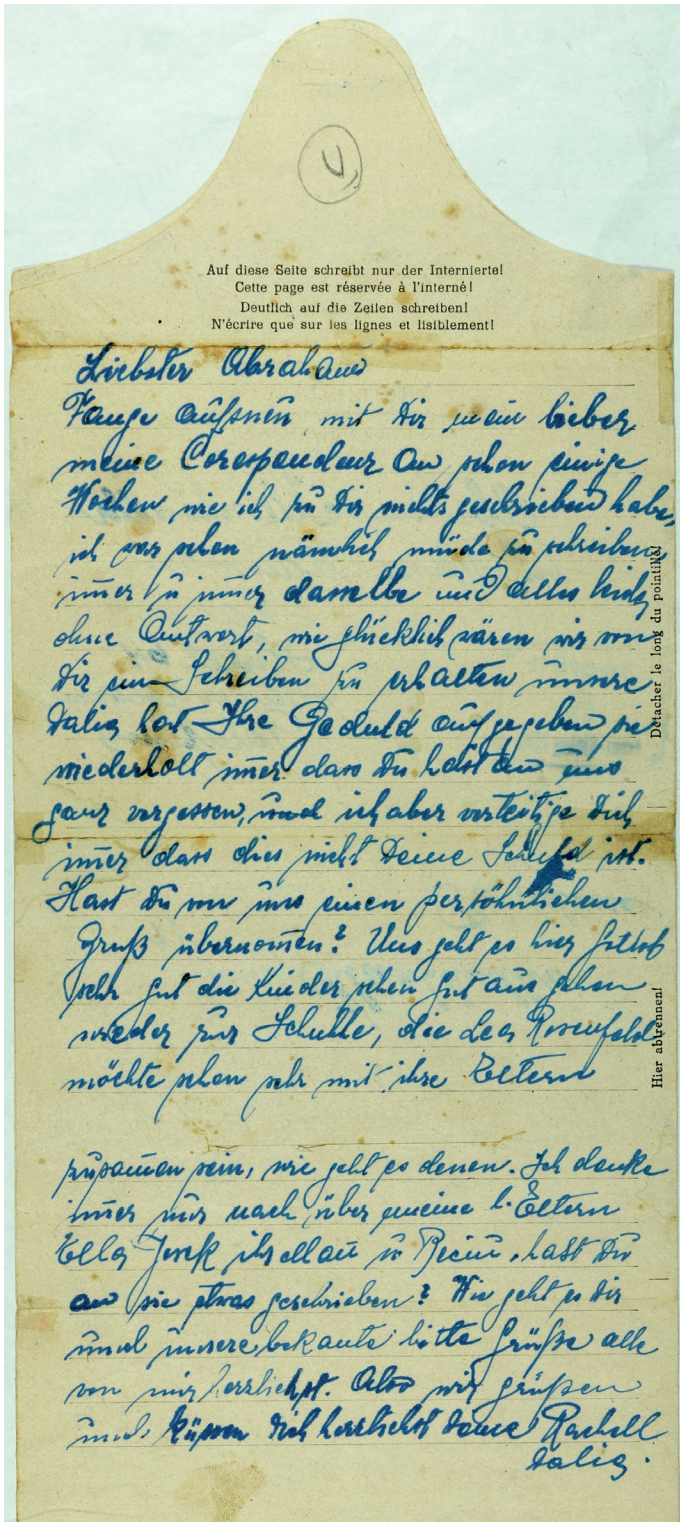 U
Auf diese Seite schreibt nur der Internierte!
Cette page est réservée à l'interné!
Deutlich auf die Zeilen schreiben!
N'écrire que sur les lignes et lisiblement!
Liebster Abraham
Fange aufsneu mit Dir mein lieber
meine Corespondenz an, schon einige
Wochen wie ich zu Dir nichts geschrieben habe,
ich war schon nämlich müde zu schreiben
immer u immer dasselbe und alles leider
ohne Antwort, wie glücklich wären wir von
Dir ein Schreiben zu erhalten unsere
Dalia hat Ihre Geduld aufgegeben sie
wiederholt immer dass Du hast an uns
ganz vergessen, und ich aber verteitige Dich
immer dass dies nicht Deine Schuld ist.
Hast Du von uns einen persöhnlichen
Gruß übernomen? Uns geht es hier Gottlob
sehr gut die Kinder sehen gut aus gehen
wieder zur Schulle, die Lea Rosenfeld
möchte schon sehr mit ihre Eltern
zusamen sein, wie geht es denen. Ich denke
immer nur nach über meine l. Eltern
Ella Josek ihr u hast Du
an sie etwas geschrieben? Wie geht es Dir
und unsere bekante bitte Grüße alle
von mir herzlichst. Also wir grüßen
und küssen Dich herzlichst Deine Rachell
Dalia.
Détacher le long du pointillé!
Hier abtrennen!